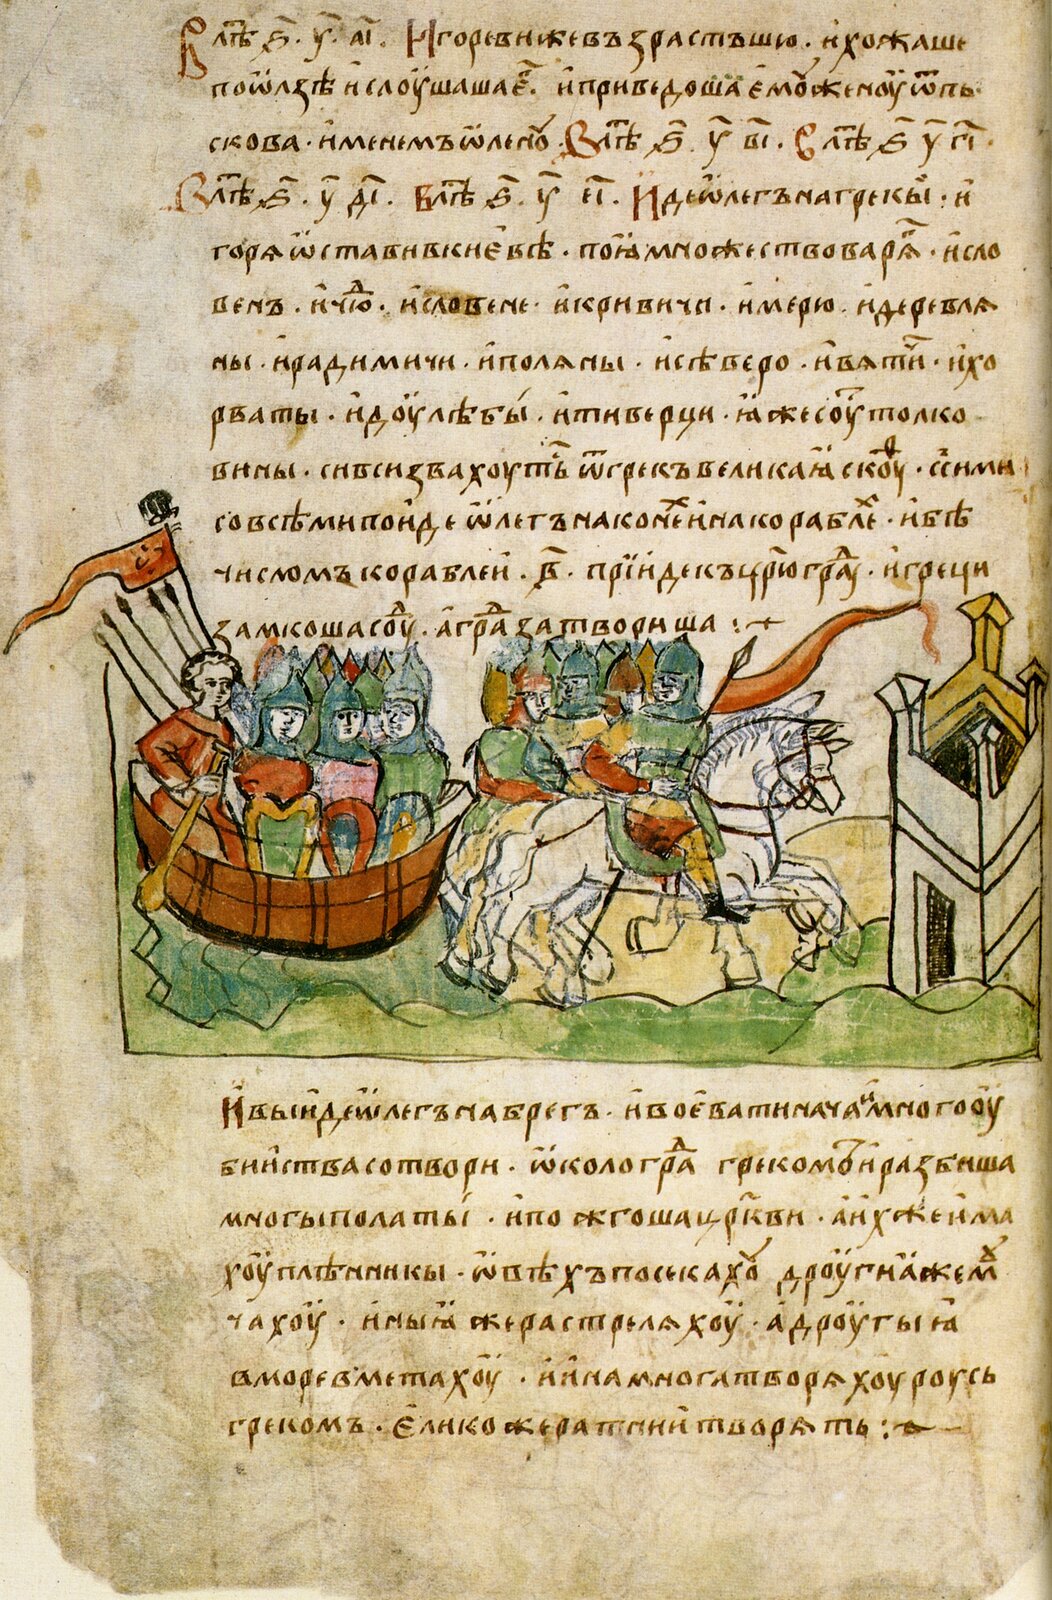 В лѣⷮ ҂ѕ҃. у҃. аі҃. Игореви же възрастъшю. и хожаше
по ѡлзѣ и слоушаша еⷢ҇. и приведоша емоу женоу ѿ пь
скова. именемъ ѡленоу. В лѣⷮ ҂ѕ҃ у҃ ві҃. В лѣⷮ ҂ѕ҃ у҃ гі҃.
В лѣⷮ ҂ѕ҃. у҃ ді҃. В лѣⷮ ҂ѕ҃. у҃ еі҃. Иде ѡлегъ на грекы. и
горя ѡстави в киевѣ. поя множество варяⷢ҇. и сло
венъ. и чюⷣ. и словене. и кривичи. и мерю. и деревля
ны. и радимичи. и поляны. и сѣверо. и вятиⷱ. и хо
рваты. и доулѣбы. и тиверци. яже соуⷮ толко
вины. си вси звахоуть ѿ грекъ великая скоуⷴ. с сими
со всѣми поиде ѡлегъ на конеⷯ и на кораблеⷯ. и бѣ
числомъ кораблеи. в҃. прїиде къ црⷭ҇юграⷣу. и греци
замкоша соуⷣ. а граⷣ затвориша :~
И выиде ѡлегъ на брегъ. и воевати нача и много оу
биства сотвори. ѡколо граⷣ грекомъ и разбиша
многы полаты. и пожгоша црⷭ҇кви. а ихже има
хоу плѣнникы. ѡвѣхъ посекахоу дроугия же моуⷱ
чахоу. иныя же растреляхоу. а дроугыя
в море вметахоу. и ина многа творяхоу роусь
грекомъ. елико же ратнии творять :~